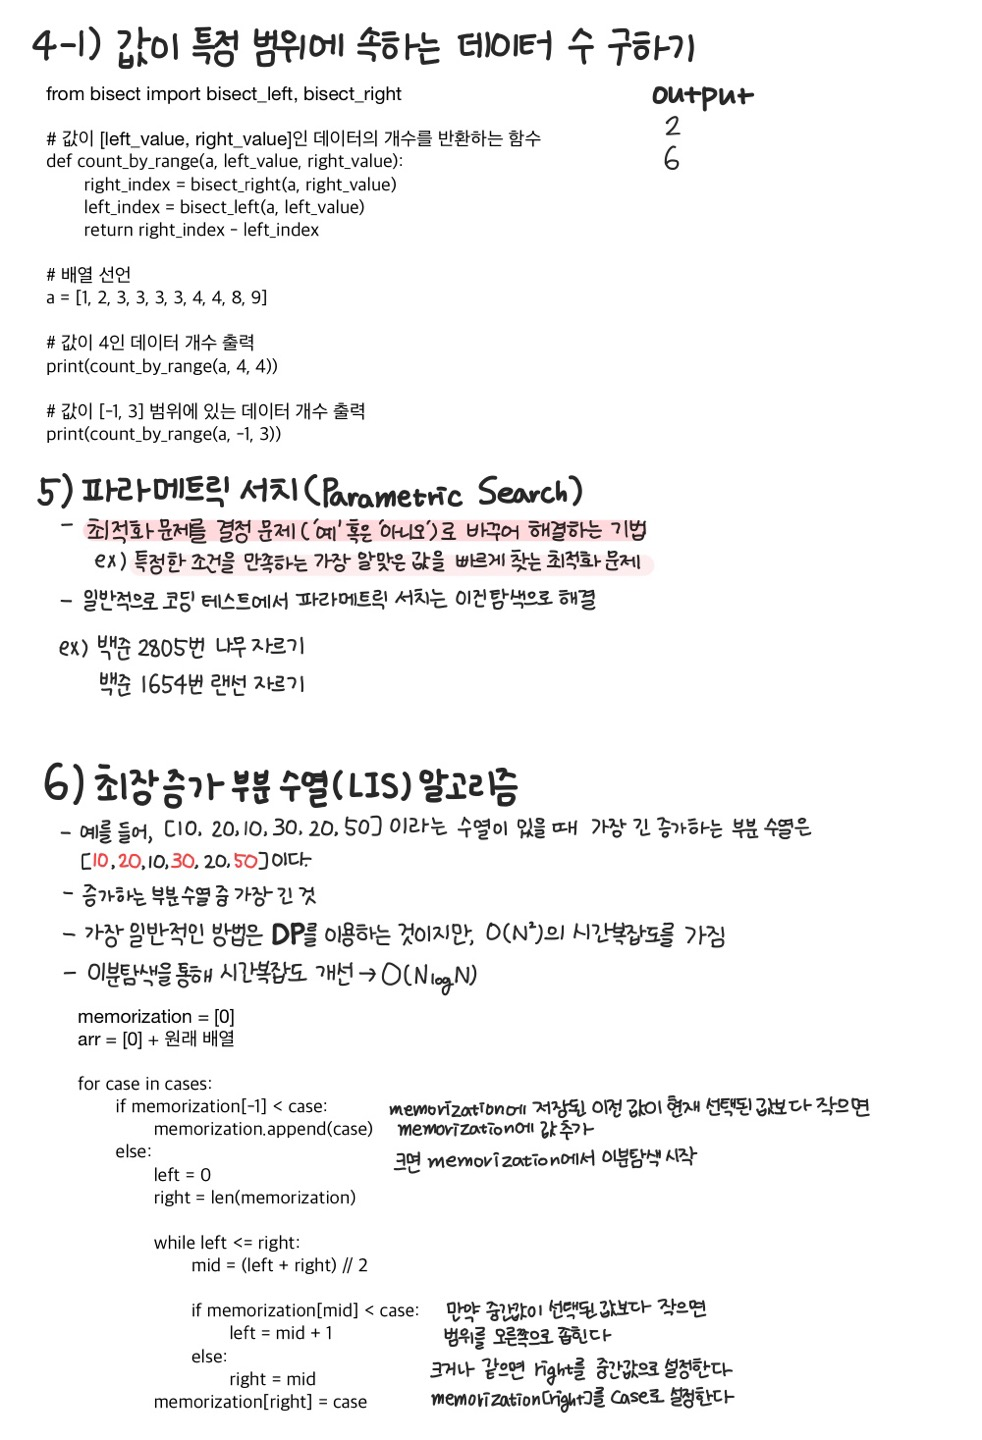 4-1) 값이 특정 범위에 속하는 데이터 수 구하기
from bisect import bisect_left, bisect_right
# 값이 [left_value, right_value]인 데이터의 개수를 반환하는 함수
def count_by_range(a, left_value, right_value):
right_index = bisect_right(a, right_value)
left_index = bisect_left(a, left_value)
return right_index - left_index
# 배열 선언
a = [1, 2, 3, 3, 3, 3, 4, 4, 8, 9]
# 값이 4인 데이터 개수 출력
print(count_by_range(a, 4, 4))
# 값이 [-1, 3] 범위에 있는 데이터 개수 출력
print(count_by_range(a, -1, 3))
output
2
6
5) 파라메트릭 서치(Parametric Search)
- 최적화 문제를 결정 문제('예' 혹은 '아니오')로 바꾸어 해결하는 기법
ex) 특정한 조건을 만족하는 가장 알맞은 값을 빠르게 찾는 최적화 문제
- 일반적으로 코딩 테스트에서 파라메트릭 서치는 이진탐색으로 해결
ex) 백준 2805번 나무 자르기
백준 1654번 랜선 자르기
6) 최장 증가 부분 수열(LIS) 알고리즘
- 예를 들어, [10, 20, 10, 30, 20, 50] 이라는 수열이 있을 때 가장 긴 증가하는 부분 수열은
[10, 20, 10, 30, 20, 50]이다.
- 증가하는 부분 수열 중 가장 긴 것
- 가장 일반적인 방법은 DP를 이용하는 것이지만, O(N²)의 시간복잡도를 가짐
- 이분탐색을 통해 시간복잡도 개선 → O(NlogN)
memorization = [0]
arr = [0] + 원래 배열
for case in cases:
if memorization[-1] < case: memorization에 저장된 이전 값이 현재 선택된 값보다 작으면
memorization.append(case) memorization에 값 추가
else: 크면 memorization에서 이분탐색 시작
left = 0
right = len(memorization)
while left <= right:
mid = (left + right) // 2
if memorization[mid] < case: 만약 중간값이 선택된 값보다 작으면
left = mid + 1 범위를 오른쪽으로 좁힌다
else: 크거나 같으면 right를 중간값으로 설정한다
right = mid
memorization[right] = case memorization[right]를 case로 설정한다